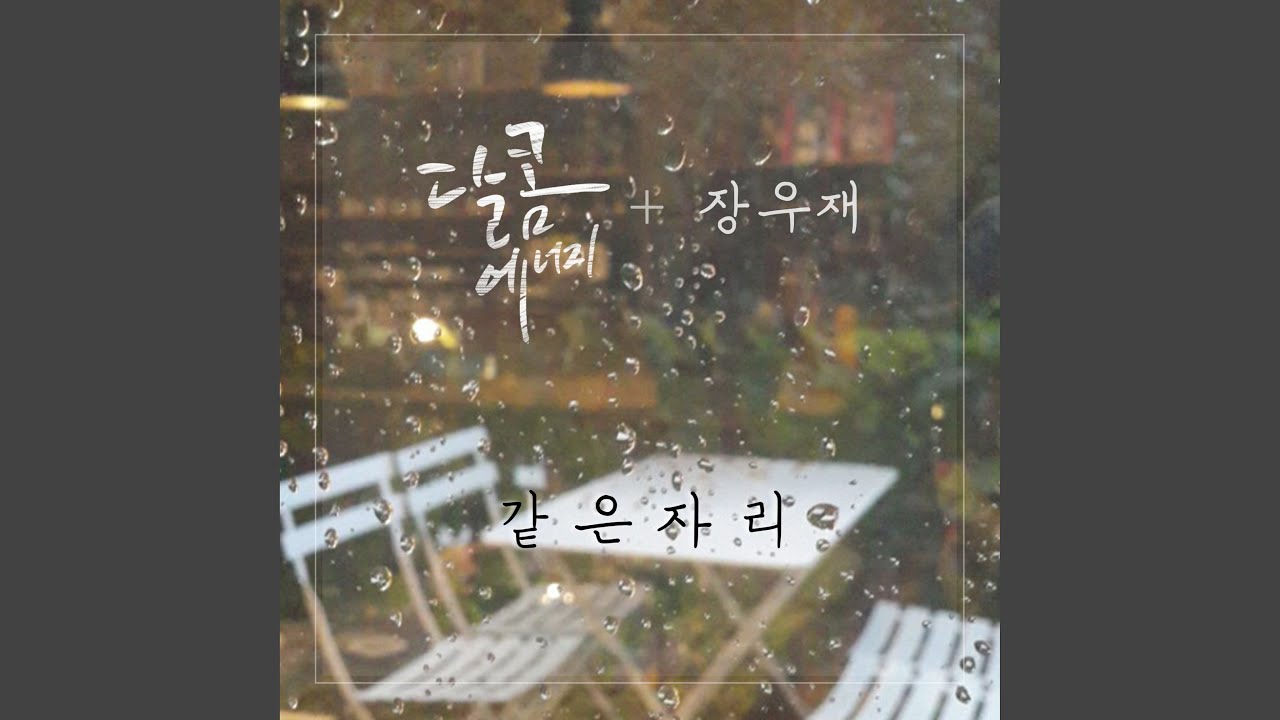 달콤
에너지
+ 장우재
같은자리